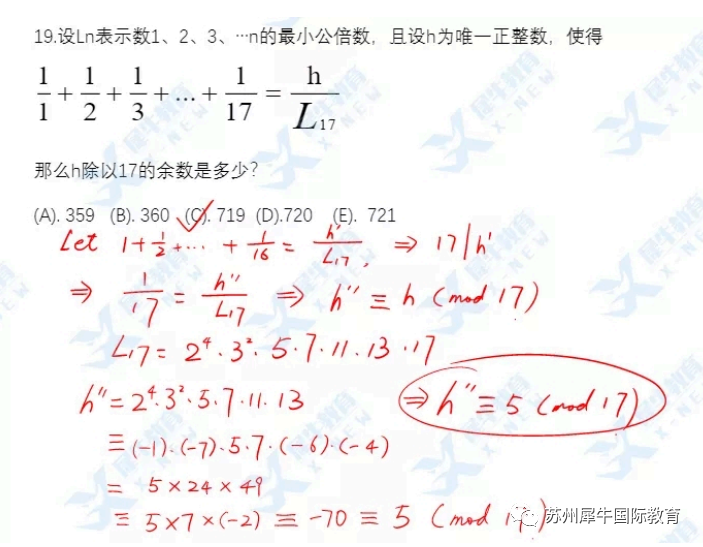 19.设Ln表示数1、2、3、…n的最小公倍数，且设h为唯一正整数，使得
1/1 + 1/2 + 1/3 + ... + 1/17 = h/L17
那么h除以17的余数是多少？
(A). 359 (B). 360 (C). 719 (D).720 (E). 721
Let 1+1/2+...+1/16 = h'/L17, ⇒ 17|h'
⇒ 1/17 = h''/L17 ⇒ h'' ≡ h (mod 17)
L17 = 2⁴·3²·5·7·11·13·17
h'' = 2⁴·3²·5·7·11·13 ⇒ h'' ≡ 5 (mod 17)
≡ (-1)·(-7)·5·7·(-6)·(-4)
= 5×24×49
≡ 5×7×(-2) ≡ -70 ≡ 5 (mod 17)
苏州犀牛国际教育
犀牛教育
X-NEW